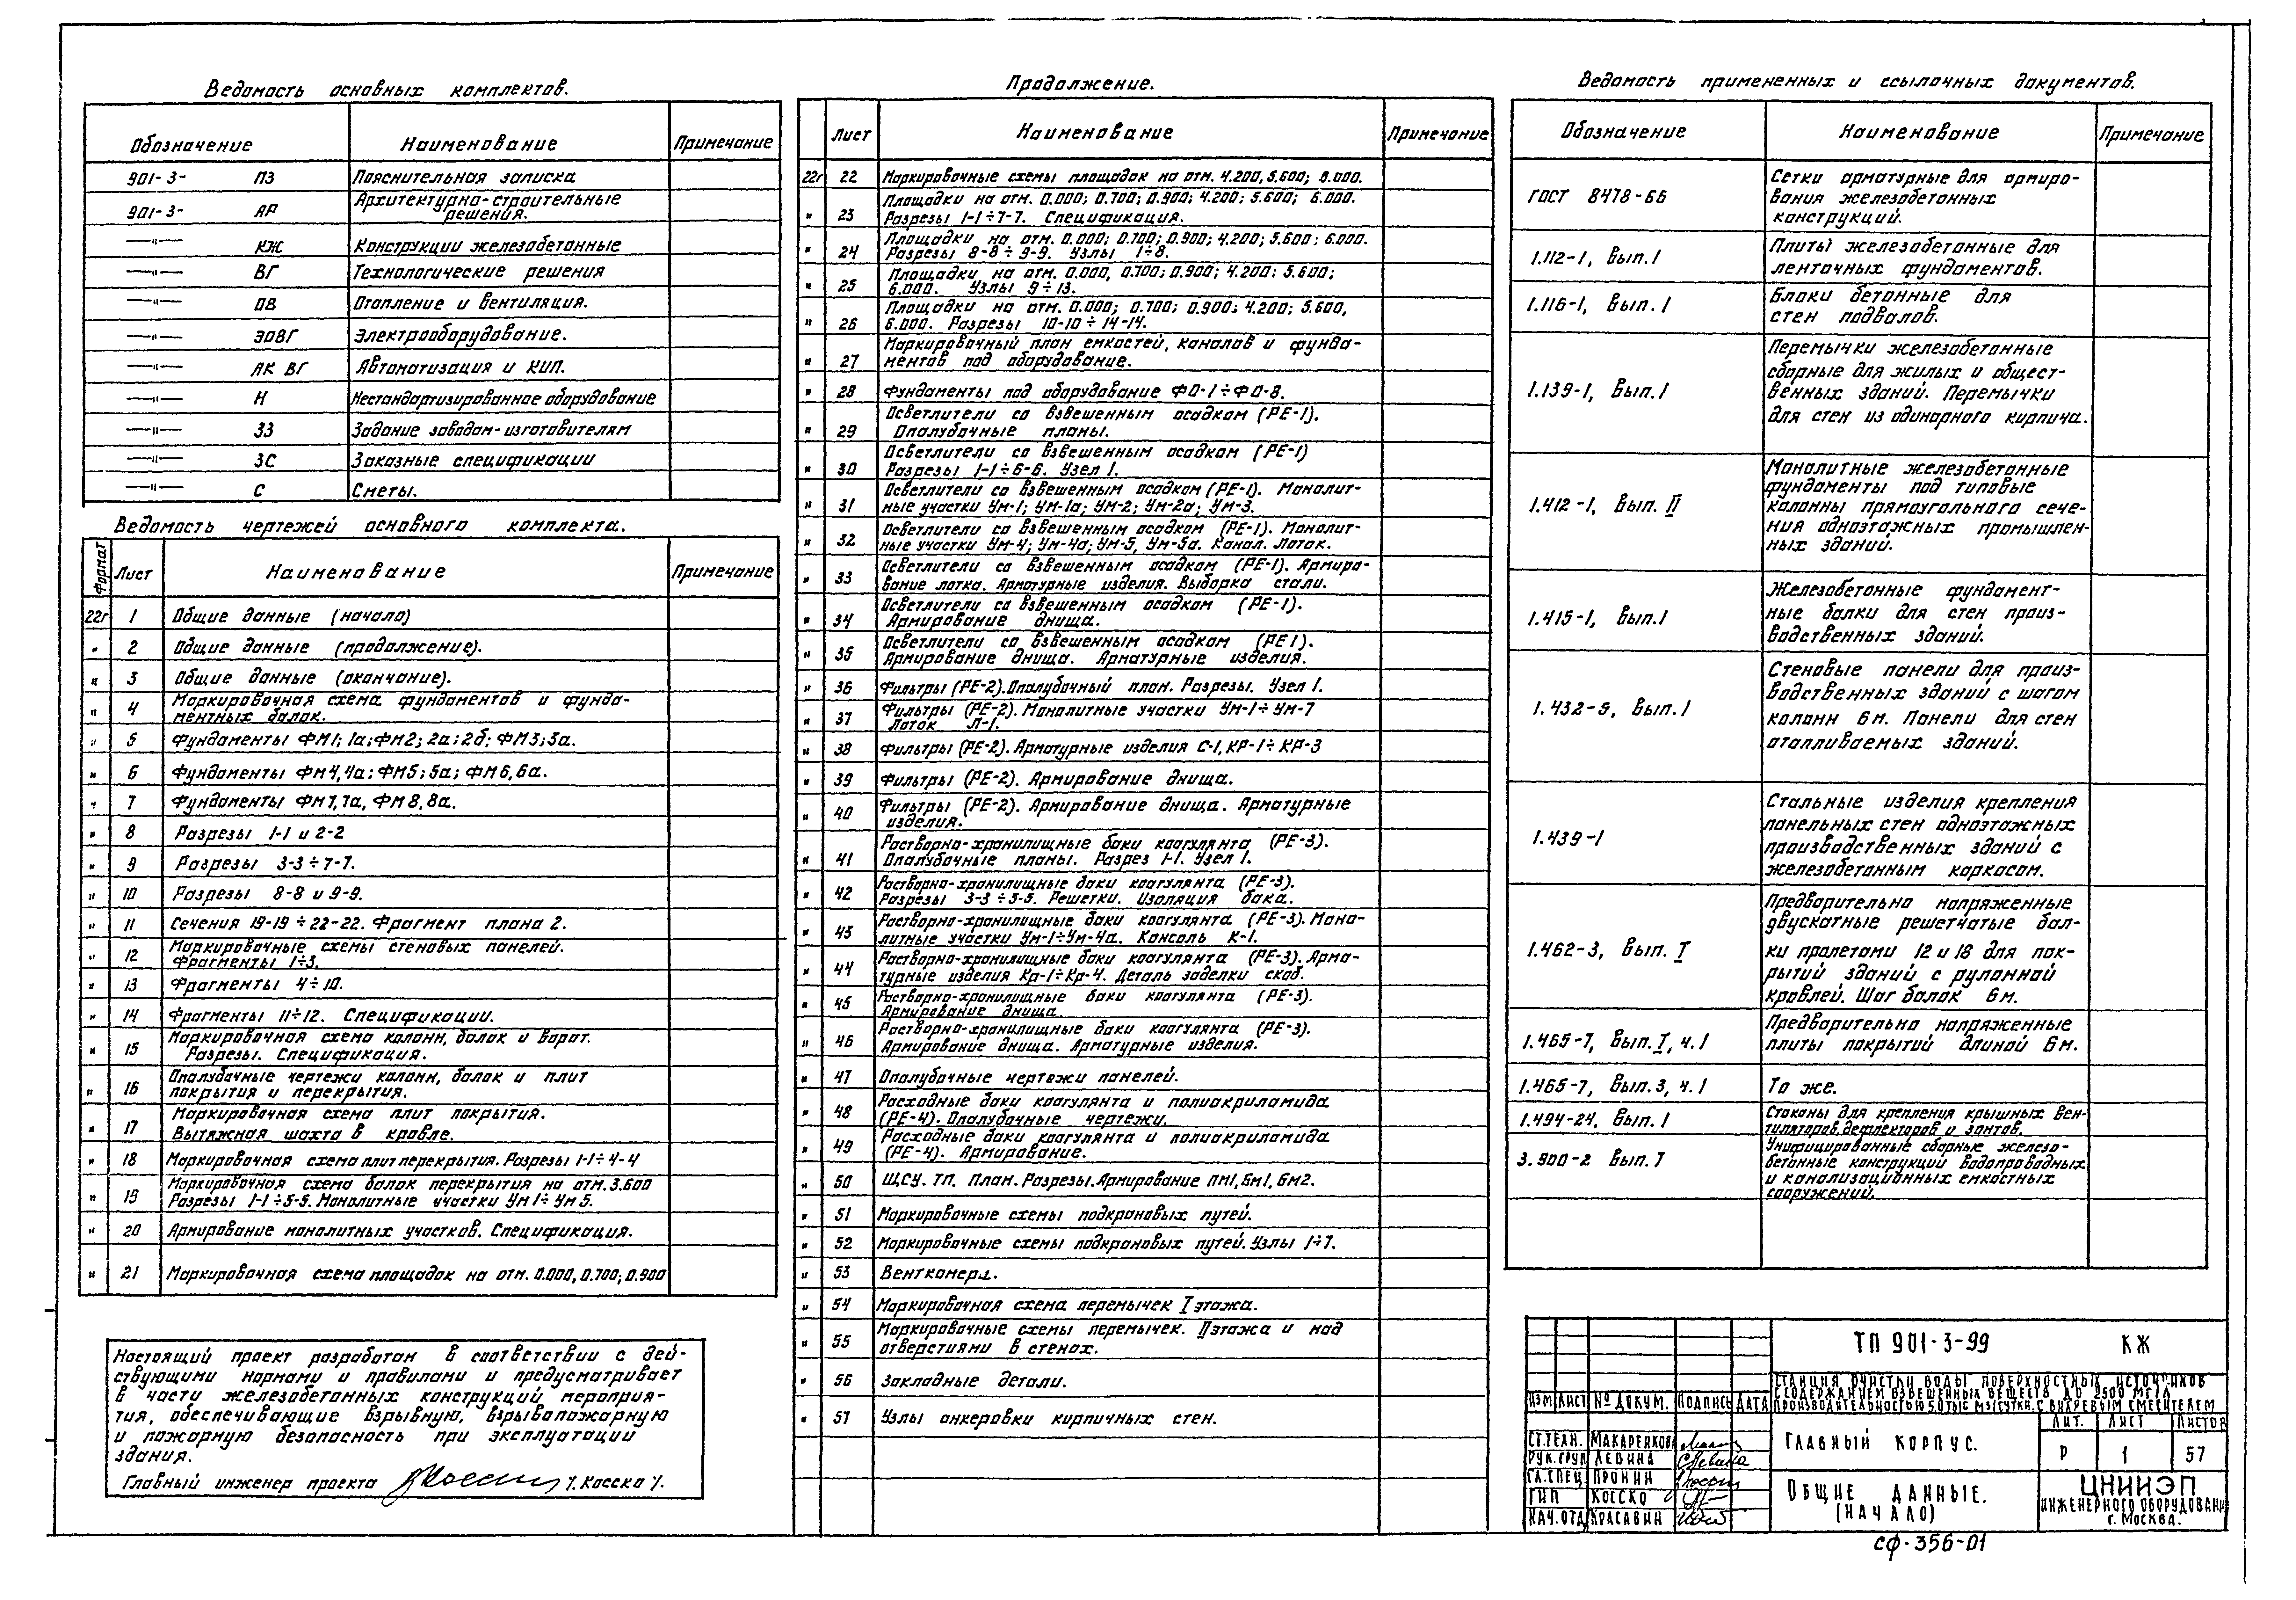 Ведомость основных комплектов.
Обозначение Наименование Примечание
901-3- ПЗ Пояснительная записка
901-3- АР Архитектурно-строительные
решения.
—"— КЖ Конструкции железобетонные
—"— ВГ Технологические решения
—"— ОВ Отопление и вентиляция.
—"— ЭОВГ Электрооборудование.
—"— АК ВГ Автоматизация и КИП.
—"— Н Нестандартизированное оборудование
—"— ЗЗ Задание заводам-изготовителям
—"— ЗС Заказные спецификации
—"— С Сметы.
Ведомость чертежей основного комплекта.
Формат Лист Наименование Примечание
22г 1 Общие данные (начало)
" 2 Общие данные (продолжение).
" 3 Общие данные (окончание).
" 4 Маркировочная схема фундаментов и фунда-
ментных балок.
" 5 Фундаменты ФМ1; 1а; ФМ2; 2а; 2б; ФМ3; 3а.
" 6 Фундаменты ФМ4, 4а; ФМ5; 5а; ФМ6, 6а.
" 7 Фундаменты ФМ7, 7а, ФМ8, 8а.
" 8 Разрезы 1-1 и 2-2
" 9 Разрезы 3-3÷7-7.
" 10 Разрезы 8-8 и 9-9.
" 11 Сечения 19-19÷22-22. Фрагмент плана 2.
" 12 Маркировочные схемы стеновых панелей.
Фрагменты 1÷3.
" 13 Фрагменты 4÷10.
" 14 Фрагменты 11÷12. Спецификации.
" 15 Маркировочная схема колонн, балок и ворот.
Разрезы. Спецификация.
" 16 Опалубочные чертежи колонн, балок и плит
покрытия и перекрытия.
" 17 Маркировочная схема плит покрытия.
Вытяжная шахта в кровле.
" 18 Маркировочная схема плит перекрытия. Разрезы 1-1÷4-4
" 19 Маркировочная схема балок перекрытия на отм. 3.600
Разрезы 1-1÷5-5. Монолитные участки Ум1÷Ум5.
" 20 Армирование монолитных участков. Спецификация.
" 21 Маркировочная схема площадок на отм. 0.000, 0.700; 0.900
Настоящий проект разработан в соответствии с дей-
ствующими нормами и правилами и предусматривает
в части железобетонных конструкций мероприя-
тия, обеспечивающие взрывную, взрывопожарную
и пожарную безопасность при эксплуатации
здания.
Главный инженер проекта /. Косско /.
Продолжение.
Лист Наименование Примечание
22г 22 Маркировочные схемы площадок на отм. 4.200, 5.600; 6.000.
" 23 Площадки на отм. 0.000; 0.700; 0.900; 4.200; 5.600; 6.000.
Разрезы 1-1÷7-7. Спецификация.
" 24 Площадки на отм. 0.000; 0.700; 0.900; 4.200; 5.600; 6.000.
Разрезы 8-8÷9-9. Узлы 1÷8.
" 25 Площадки на отм. 0.000, 0.700; 0.900; 4.200; 5.600;
6.000. Узлы 9÷13.
" 26 Площадки на отм. 0.000; 0.700; 0.900; 4.200; 5.600,
6.000. Разрезы 10-10÷14-14.
" 27 Маркировочный план емкостей, каналов и фунда-
ментов под оборудование.
" 28 Фундаменты под оборудование ФО-1÷ФО-8.
" 29 Осветлители со взвешенным осадком (РЕ-1).
Опалубочные планы.
" 30 Осветлители со взвешенным осадком (РЕ-1)
Разрезы 1-1÷6-6. Узел 1.
" 31 Осветлители со взвешенным осадком (РЕ-1). Монолит-
ные участки Ум-1; Ум-1а; Ум-2; Ум-2а; Ум-3.
" 32 Осветлители со взвешенным осадком (РЕ-1). Монолит-
ные участки Ум-4; Ум-4а; Ум-5, Ум-5а. Канал. Лоток.
" 33 Осветлители со взвешенным осадком (РЕ-1). Армиро-
вание лотка. Арматурные изделия. Выборка стали.
" 34 Осветлители со взвешенным осадком (РЕ-1).
Армирование днища.
" 35 Осветлители со взвешенным осадком (РЕ1).
Армирование днища. Арматурные изделия.
" 36 Фильтры (РЕ-2). Опалубочный план. Разрезы. Узел 1.
" 37 Фильтры (РЕ-2). Монолитные участки Ум-1÷Ум-7
Лоток Л-1.
" 38 Фильтры (РЕ-2). Арматурные изделия С-1, КР-1÷КР-3
" 39 Фильтры (РЕ-2). Армирование днища.
" 40 Фильтры (РЕ-2). Армирование днища. Арматурные
изделия.
" 41 Растворно-хранилищные баки коагулянта (РЕ-3).
Опалубочные планы. Разрез 1-1. Узел 1.
" 42 Растворно-хранилищные баки коагулянта (РЕ-3).
Разрезы 3-3÷5-5. Решетки. Изоляция бака.
" 43 Растворно-хранилищные баки коагулянта (РЕ-3). Моно-
литные участки Ум-1÷Ум-4а. Консоль К-1.
" 44 Растворно-хранилищные баки коагулянта (РЕ-3). Арма-
турные изделия Кр-1÷Кр-4. Деталь заделки скоб.
" 45 Растворно-хранилищные баки коагулянта (РЕ-3).
Армирование днища.
" 46 Растворно-хранилищные баки коагулянта (РЕ-3).
Армирование днища. Арматурные изделия.
" 47 Опалубочные чертежи панелей.
" 48 Расходные баки коагулянта и полиакриламида
(РЕ-4). Опалубочные чертежи.
" 49 Расходные баки коагулянта и полиакриламида
(РЕ-4). Армирование.
" 50 ЩСУ. ТП. План. Разрезы. Армирование ПМ1, Бм1, Бм2.
" 51 Маркировочные схемы подкрановых путей.
" 52 Маркировочные схемы подкрановых путей. Узлы 1÷7.
" 53 Венткамера.
" 54 Маркировочная схема перемычек I этажа.
" 55 Маркировочные схемы перемычек. II этажа и над
отверстиями в стенах.
" 56 Закладные детали.
" 57 Узлы анкеровки кирпичных стен.
Ведомость примененных и ссылочных документов.
Обозначение Наименование Примечание
ГОСТ 8478-66 Сетки арматурные для армиро-
вания железобетонных
конструкций.
1.112-1, Вып. 1 Плиты железобетонные для
ленточных фундаментов.
1.116-1, Вып. 1 Блоки бетонные для
стен подвалов.
1.139-1, Вып. 1 Перемычки железобетонные
сборные для жилых и общест-
венных зданий. Перемычки
для стен из одинарного кирпича.
1.412-1, Вып. II Монолитные железобетонные
фундаменты под типовые
колонны прямоугольного сече-
ния одноэтажных промышлен-
ных зданий.
1.415-1, Вып. 1 Железобетонные фундамент-
ные балки для стен произ-
водственных зданий.
1.432-5, Вып. 1 Стеновые панели для произ-
водственных зданий с шагом
колонн 6м. Панели для стен
отапливаемых зданий.
1.439-1 Стальные изделия крепления
панельных стен одноэтажных
производственных зданий с
железобетонным каркасом.
1.462-3, Вып. I Предварительно напряженные
двускатные решетчатые бал-
ки пролетами 12 и 18 для пок-
рытий зданий с рулонной
кровлей. Шаг балок 6м.
1.465-7, Вып. I, ч. 1 Предварительно напряженные
плиты покрытий длиной 6м.
1.465-7, Вып. 3, ч. 1 То же.
1.494-24, Вып. 1 Стаканы для крепления крышных вен-
тиляторов, дефлекторов и зонтов.
3.900-2 Вып. 7 Унифицированные сборные железо-
бетонные конструкции водопроводных
и канализационных емкостных
сооружений.
ТП 901-3-99 КЖ
СТАНЦИЯ ОЧИСТКИ ВОДЫ ПОВЕРХНОСТНЫХ ИСТОЧНИКОВ
С СОДЕРЖАНИЕМ ВЗВЕШЕННЫХ ВЕЩЕСТВ ДО 2500 МГ/Л
ПРОИЗВОДИТЕЛЬНОСТЬЮ 5.0 ТЫС М3/СУТКИ. С ВИХРЕВЫМ СМЕСИТЕЛЕМ
ИЗМ ЛИСТ № ДОКУМ. ПОДПИСЬ ДАТА
СТ.ТЕХН. МАКАРЕНКОВА
РУК.ГРУП ЛЕВИНА
ГЛ.СПЕЦ ПРОНИН
ГИП КОССКО
НАЧ.ОТД КРАСАВИН
ГЛАВНЫЙ КОРПУС.
ЛИТ. ЛИСТ ЛИСТОВ
Р 1 57
ОБЩИЕ ДАННЫЕ.
(НАЧАЛО)
ЦНИИЭП
ИНЖЕНЕРНОГО ОБОРУДОВАНИ
Г. МОСКВА.
СФ-356-01